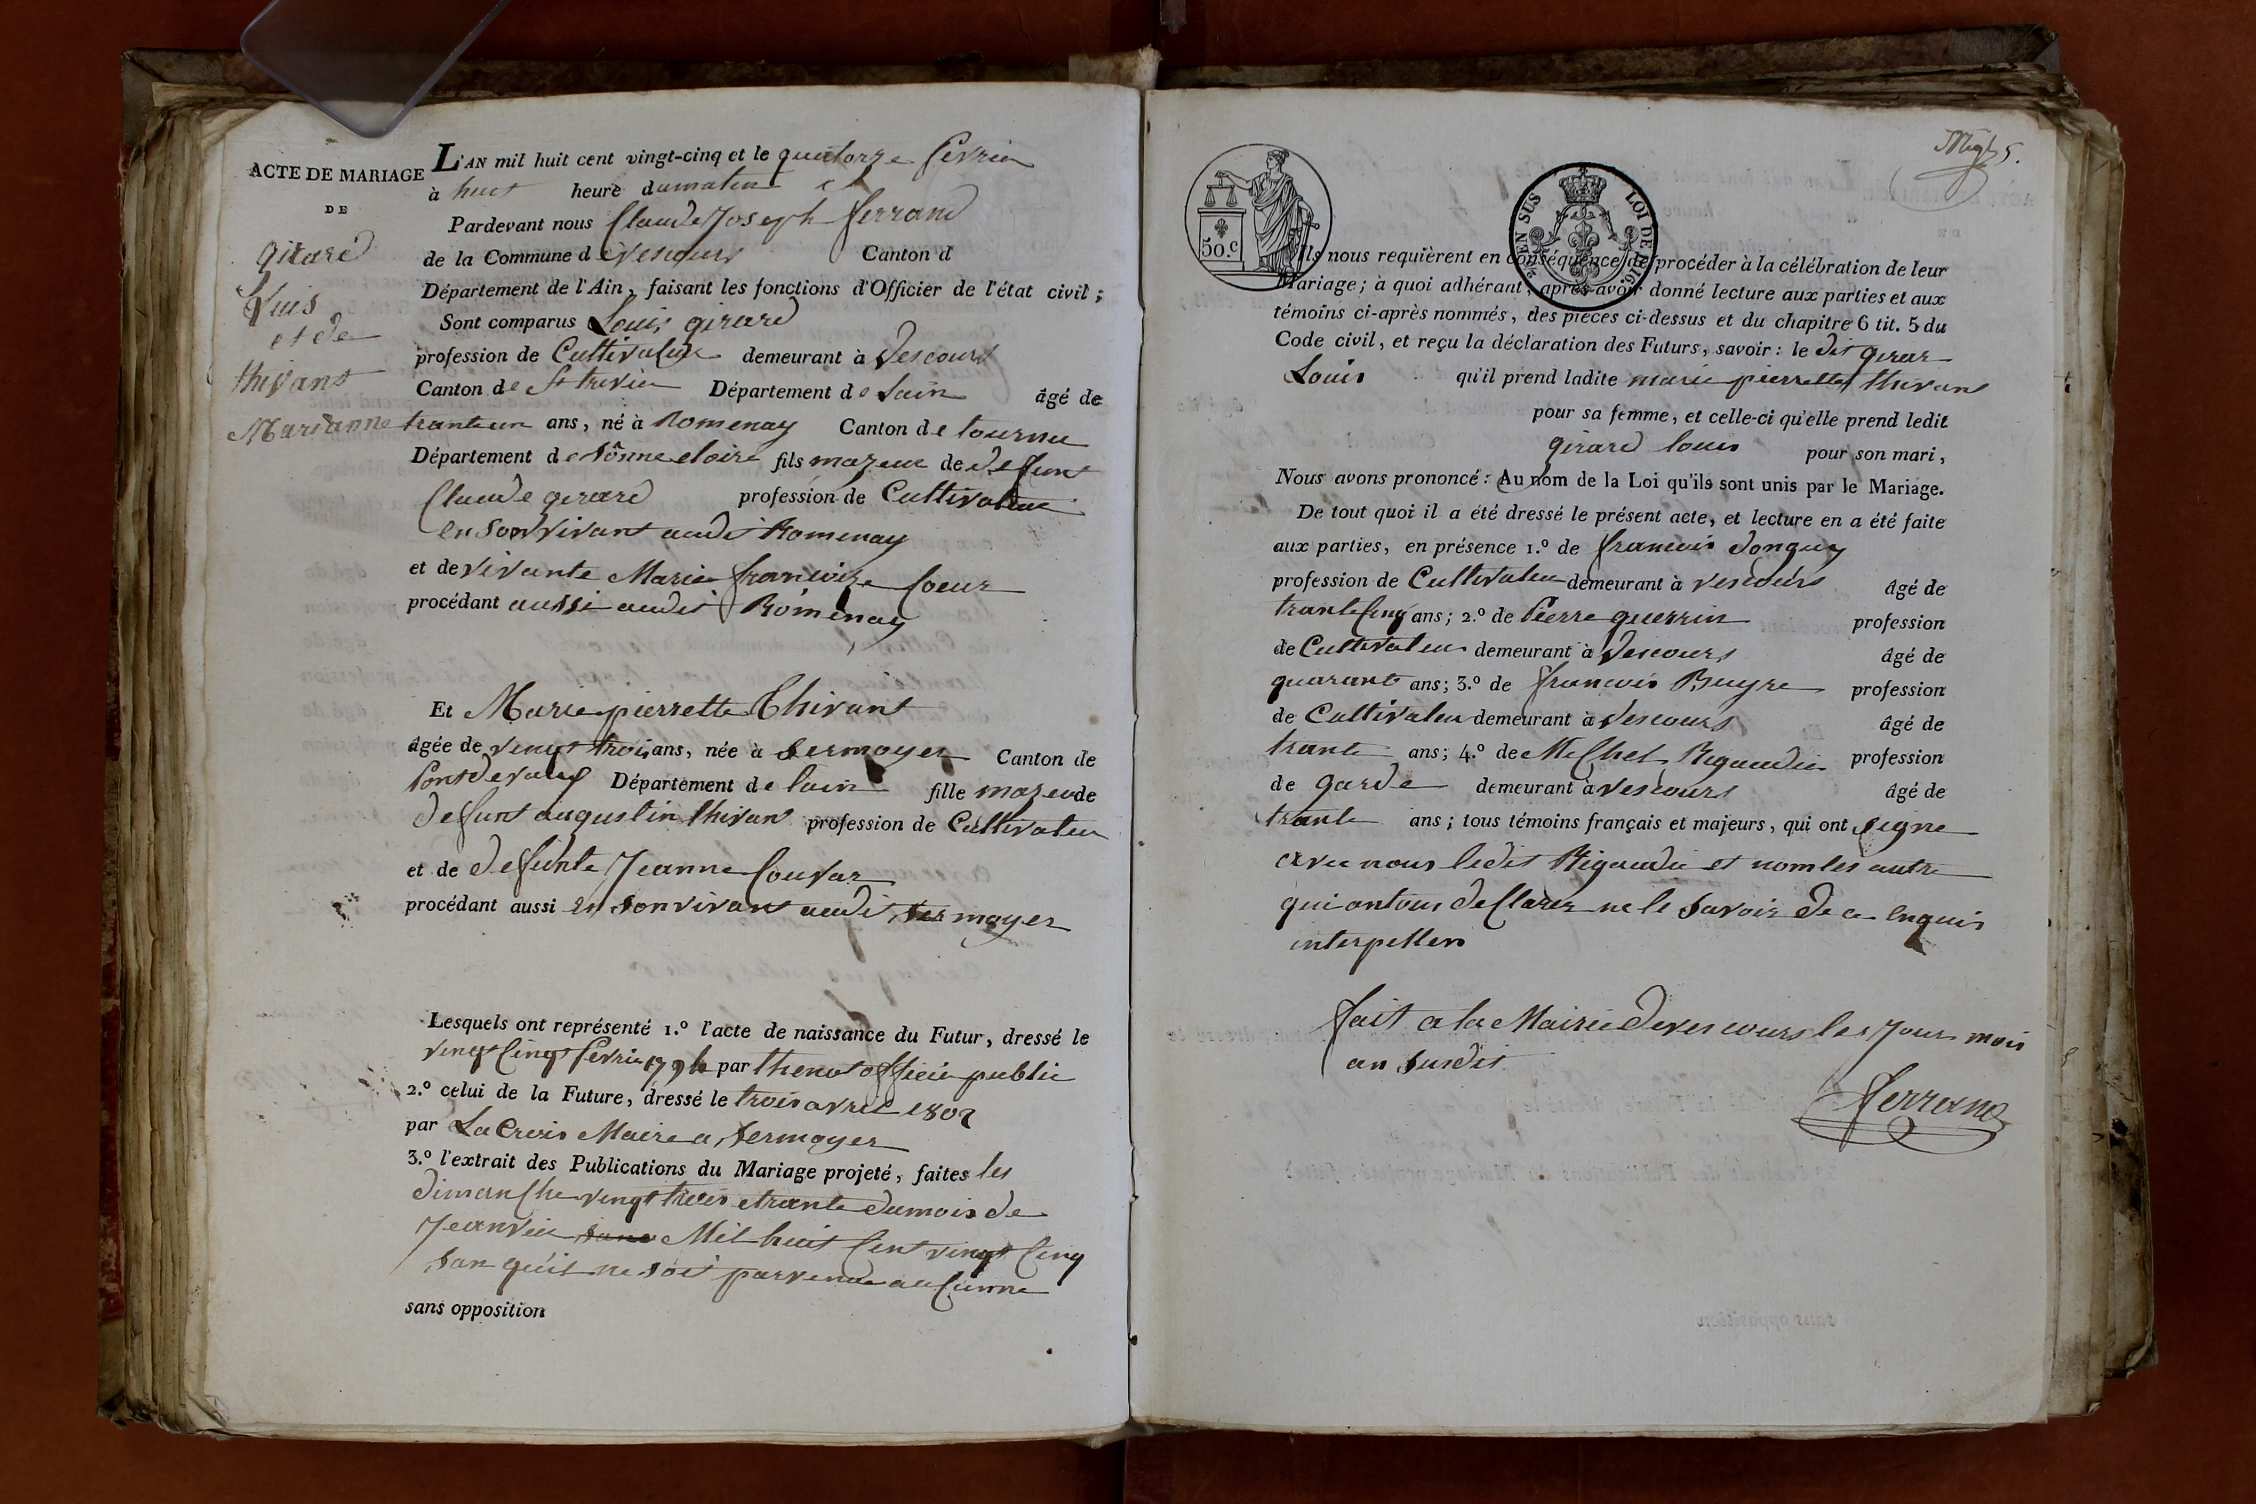 ACTE DE MARIAGE
DE
girard
Luis
et de
thivant
Marianne
L'AN mil huit cent vingt-cinq et le quatorze fevrier
à huit heure du matin
Pardevant nous Claude Joseph ferrand
de la Commune de vescours Canton d
Département de l'Ain, faisant les fonctions d'Officier de l'état civil;
Sont comparus Louis girard
profession de Cultivateur demeurant à Vescours
Canton de St trivier Département de Lain âgé de
trante un ans, né à Romenay Canton de tournu
Département de Sônne eloire fils mazeur de defunt
Claude gerard profession de Cultivateur
en son vivant audit Romenay
et de vivante Marie francoize Coeur
procédant aussi audit Romenay
Et Marie pierrette Thivant
âgée de vingt trois ans, née à Sermoyer Canton de
Pontdevaux Département de lain fille mazeur de
defunt augustin thivan profession de Cultivateur
et de defunte Jeanne Couvar
procédant aussi en son vivant audit sermoyer
Lesquels ont représenté 1.º l'acte de naissance du Futur, dressé le
vingt Cinq fevrier 1794 par thenot officié public
2.º celui de la Future, dressé le trois avril 1802
par La Crois Maire a sermoyer
3.º l'extrait des Publications du Mariage projeté, faites les
dimanche vingt trois etrante du mois de
Jeanvier sans Mil huit Cent vingt Cinq
san quil ne soit parvenue auCunne
sans opposition
5.
50.c
EN SUS
LOI DE
Ils nous requièrent en conséquence de procéder à la célébration de leur
Mariage; à quoi adhérant, après avoir donné lecture aux parties et aux
témoins ci-après nommés, des pièces ci-dessus et du chapitre 6 tit. 5 du
Code civil, et reçu la déclaration des Futurs, savoir: le dit gerar
Louis qu'il prend ladite marie pierrette thivan
pour sa femme, et celle-ci qu'elle prend ledit
girard louis pour son mari,
Nous avons prononcé: Au nom de la Loi qu'ils sont unis par le Mariage.
De tout quoi il a été dressé le présent acte, et lecture en a été faite
aux parties, en présence 1.º de francois donguy
profession de Cultivateu demeurant à vescours âgé de
trante Cinq ans; 2.º de Pierre guerrin profession
de Cultivateur demeurant à Vescours âgé de
quarant ans; 3.º de francois Buyre profession
de Cultivateu demeurant à Vescours âgé de
trante ans; 4.º de MiChel Rigaudie profession
de garde demeurant à vescours âgé de
trante ans; tous témoins français et majeurs, qui ont signe
avec nous ledit Rigaudie et nom les autre
qui ontous deClarer ne le savoir de ce enquis
interpellers
fait a la Mairie de vescours les Jour mois
an susdit
ferrand